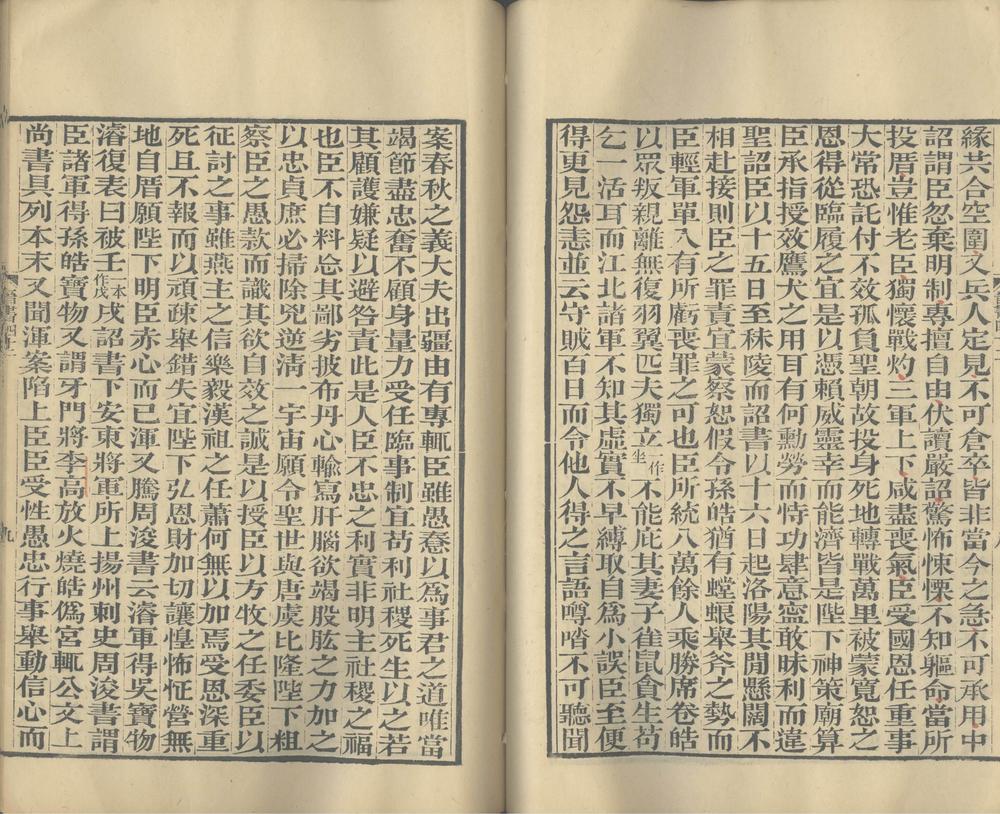 緣共合空圍又兵人定見不可倉卒皆非當今之急不可承用中
詔謂臣忽棄明制專擅自由伏讀嚴詔驚怖悚慄不知軀命當所
投厝豈惟老臣獨懷戰灼三軍上下咸盡喪氣臣受國恩任重事
大常恐託付不效孤負聖朝故投身死地轉戰萬里被蒙寬恕之
恩得從臨履之宜是以憑賴威靈幸而能濟皆是陛下神策廟算
臣承指授效鷹犬之用耳有何勳勞而恃功肆意寧敢昧利而違
聖詔臣以十五日至秣陵而詔書以十六日起洛陽其間懸闊不
相赴接則臣之罪責宜蒙察恕假令孫皓猶有螳蜋舉斧之勢而
臣輕軍單入有所虧喪罪之可也臣所統八萬餘人乘勝席卷皓
以眾叛親離無復羽翼匹夫獨立一作坐不能庇其妻子雀鼠貪生苟
乞一活耳而江北諸軍不知其虛實不早縛取自爲小誤臣至便
得更見怨恚並云守賊百日而令他人得之言語噂𠴲不可聽聞
案春秋之義大夫出疆由有專輒臣雖愚憃以爲事君之道唯當
竭節盡忠奮不顧身量力受任臨事制宜苟利社稷死生以之若
其顧護嫌疑以避咎責此是人臣不忠之利實非明主社稷之福
也臣不自料忘其鄙劣披布丹心輸寫肝腦欲竭股肱之力加之
以忠貞庶必掃除兇逆淸一宇宙願令聖世與唐虞比隆陛下粗
察臣之愚款而識其欲自效之誠是以授臣以方牧之任委臣以
征討之事雖燕主之信樂毅漢祖之任蕭何無以加焉受恩深重
死且不報而以頑疎舉錯失宜陛下弘恩財加切讓惶怖怔營無
地自厝願陛下明臣赤心而已渾又騰周浚書云濬軍得吳寶物
濬復表曰被壬一本作戊戌詔書下安東將軍所上揚州刺史周浚書謂
臣諸軍得孫皓寶物又謂牙門將李高放火燒皓僞宮輒公文上
尚書具列本末又聞渾案陷上臣臣受性愚忠行事舉動信心而